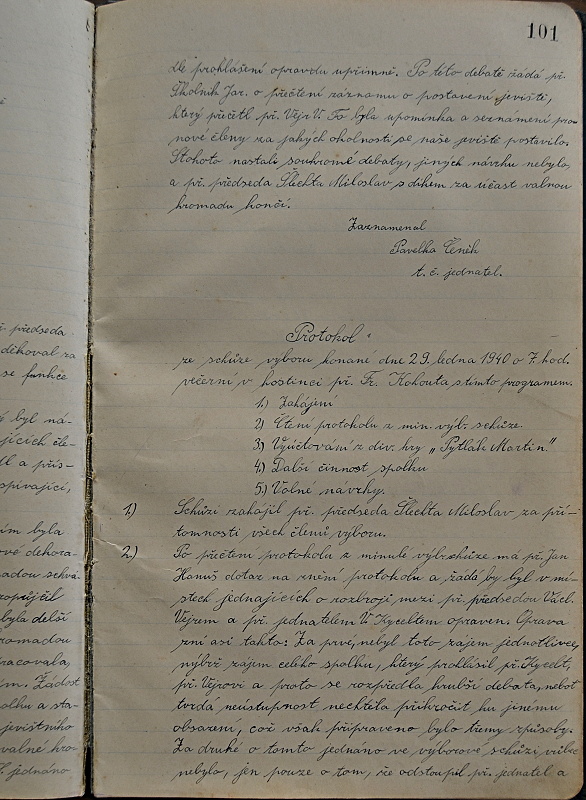 101
dlé prohlášení opravdu upřímné. Po této debatě žádá př.
Školník Jar. o přečtení záznamu o postavení jeviště,
který přečetl př. Vejr V. To byla upomínka a seznámení pro
nové členy za jakých okolností se naše jeviště postavilo.
Stohoto nastali soukromé debaty, jiných návrhu nebylo,
a př. předseda Šlechta Miloslav s díkem za účast valnou
hromadu končí.
Zaznamenal
Pavelka Čeněk
t. č. jednatel.
Protokol
ze schůze výboru konané dne 29. ledna 1940 o 7. hod.
večerní v hostinci př. Fr. Kohouta s tímto programem.
1.) Zahájení
2.) Čtení protokolu z min. výb. schůze.
3.) Vyúčtování z div. hry „Pytlák Martin."
4.) Další činnost spolku
5.) Volné návrhy.
1.) Schůzi zahájil př. předseda Šlechta Miloslav za pří-
tomnosti všech členů výboru.
2.) Po přečtení protokolu z minulé výb. schůze má př. Jan
Hanuš dotaz na znění protokolu a žádá by byl v mí-
stech jednajících o rozbroji mezi př. předsedou Václ.
Vejrem a př. jednatelem V. Kyceltem opraven. Oprava
zní asi takto: Za prvé, nebyl toto zájem jednotlivce,
nýbrž zájem celého spolku, který prohlásil př. Kycelt,
př. Vejrovi a proto se rozpředla hrubší debata, neboť
tvrdá neústupnost nechtěla přikročit ku jinému
obsazení, což však připraveno bylo třemy způsoby.
Za druhé o tomto jednáno ve výborové schůzi vůbec
nebylo, jen pouze o tom, že odstoupil př. jednatel a
předseda
děkoval za
se funkce
byl ná-
jících čle-
tl a přís-
spívající,
ím byla
ové dekora-
madou schvá-
byla delší
romadou
racovala,
m. Žádost
olku a sta-
jevištního
valné hro-
jednáno